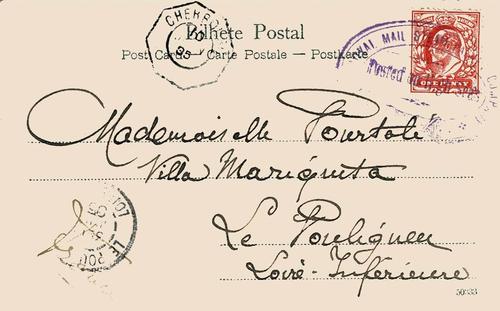 Bilhete Postal
Post Card — Carte Postale — Postkarte
CHERBO
MAIL
Posted on High Seas
ONE PENNY
Mademoiselle Pourtalé
Villa Mariquita
Le Pouliguen
Loire-Inférieure
LE POU
50333